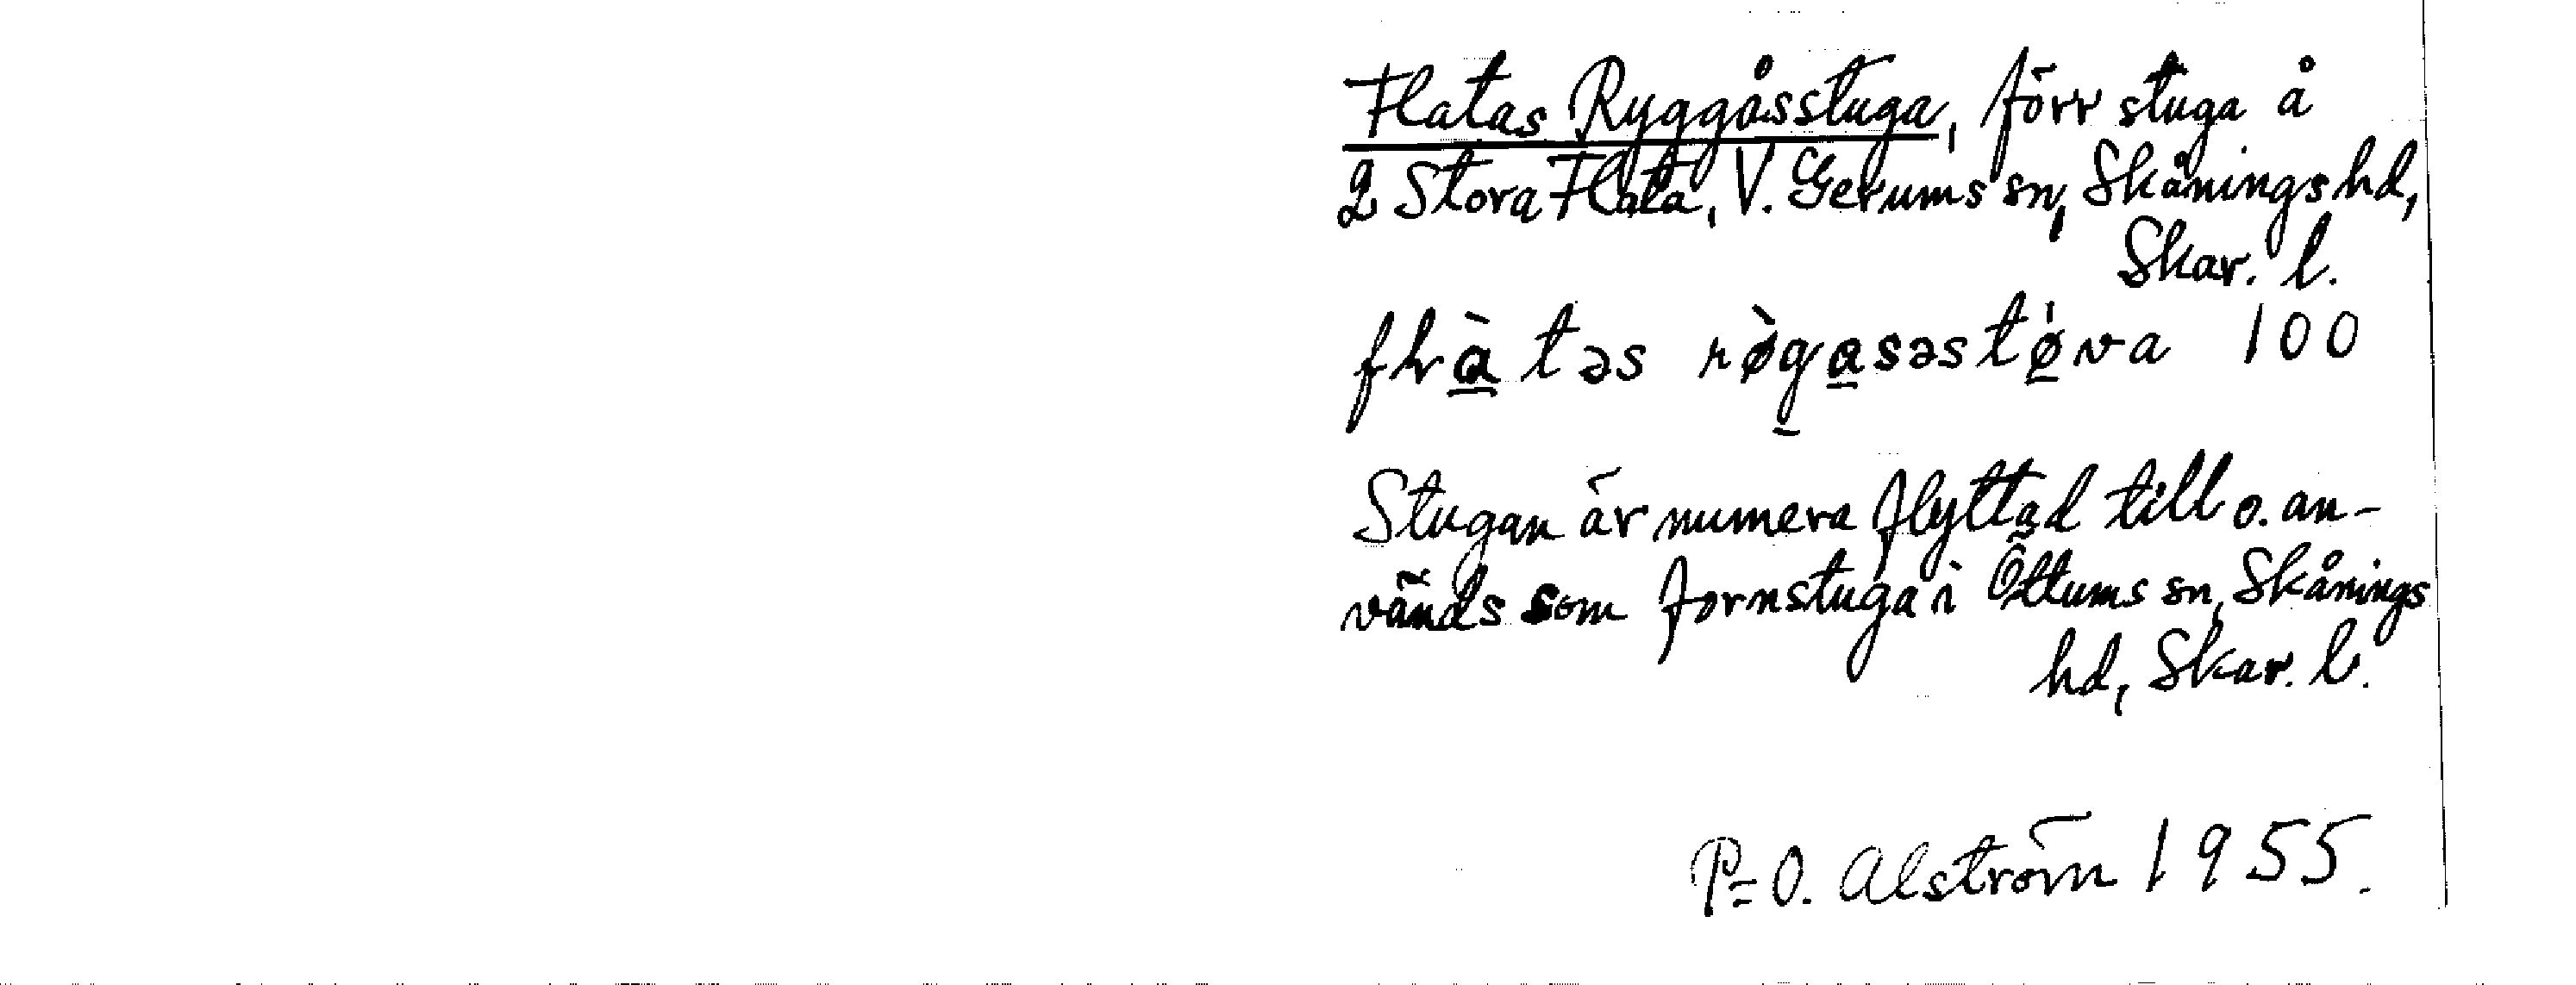 Flatas Ryggåsstuga, förr stuga å
2 Stora Flata, V. Gerums sn, Skånings hd,
Skar. l.
100
Stugan är numera flyttad till o. an-
vänds som fornstuga i Öttums sn, Skånings
hd, Skar. l.
P=O. Alström 1955.